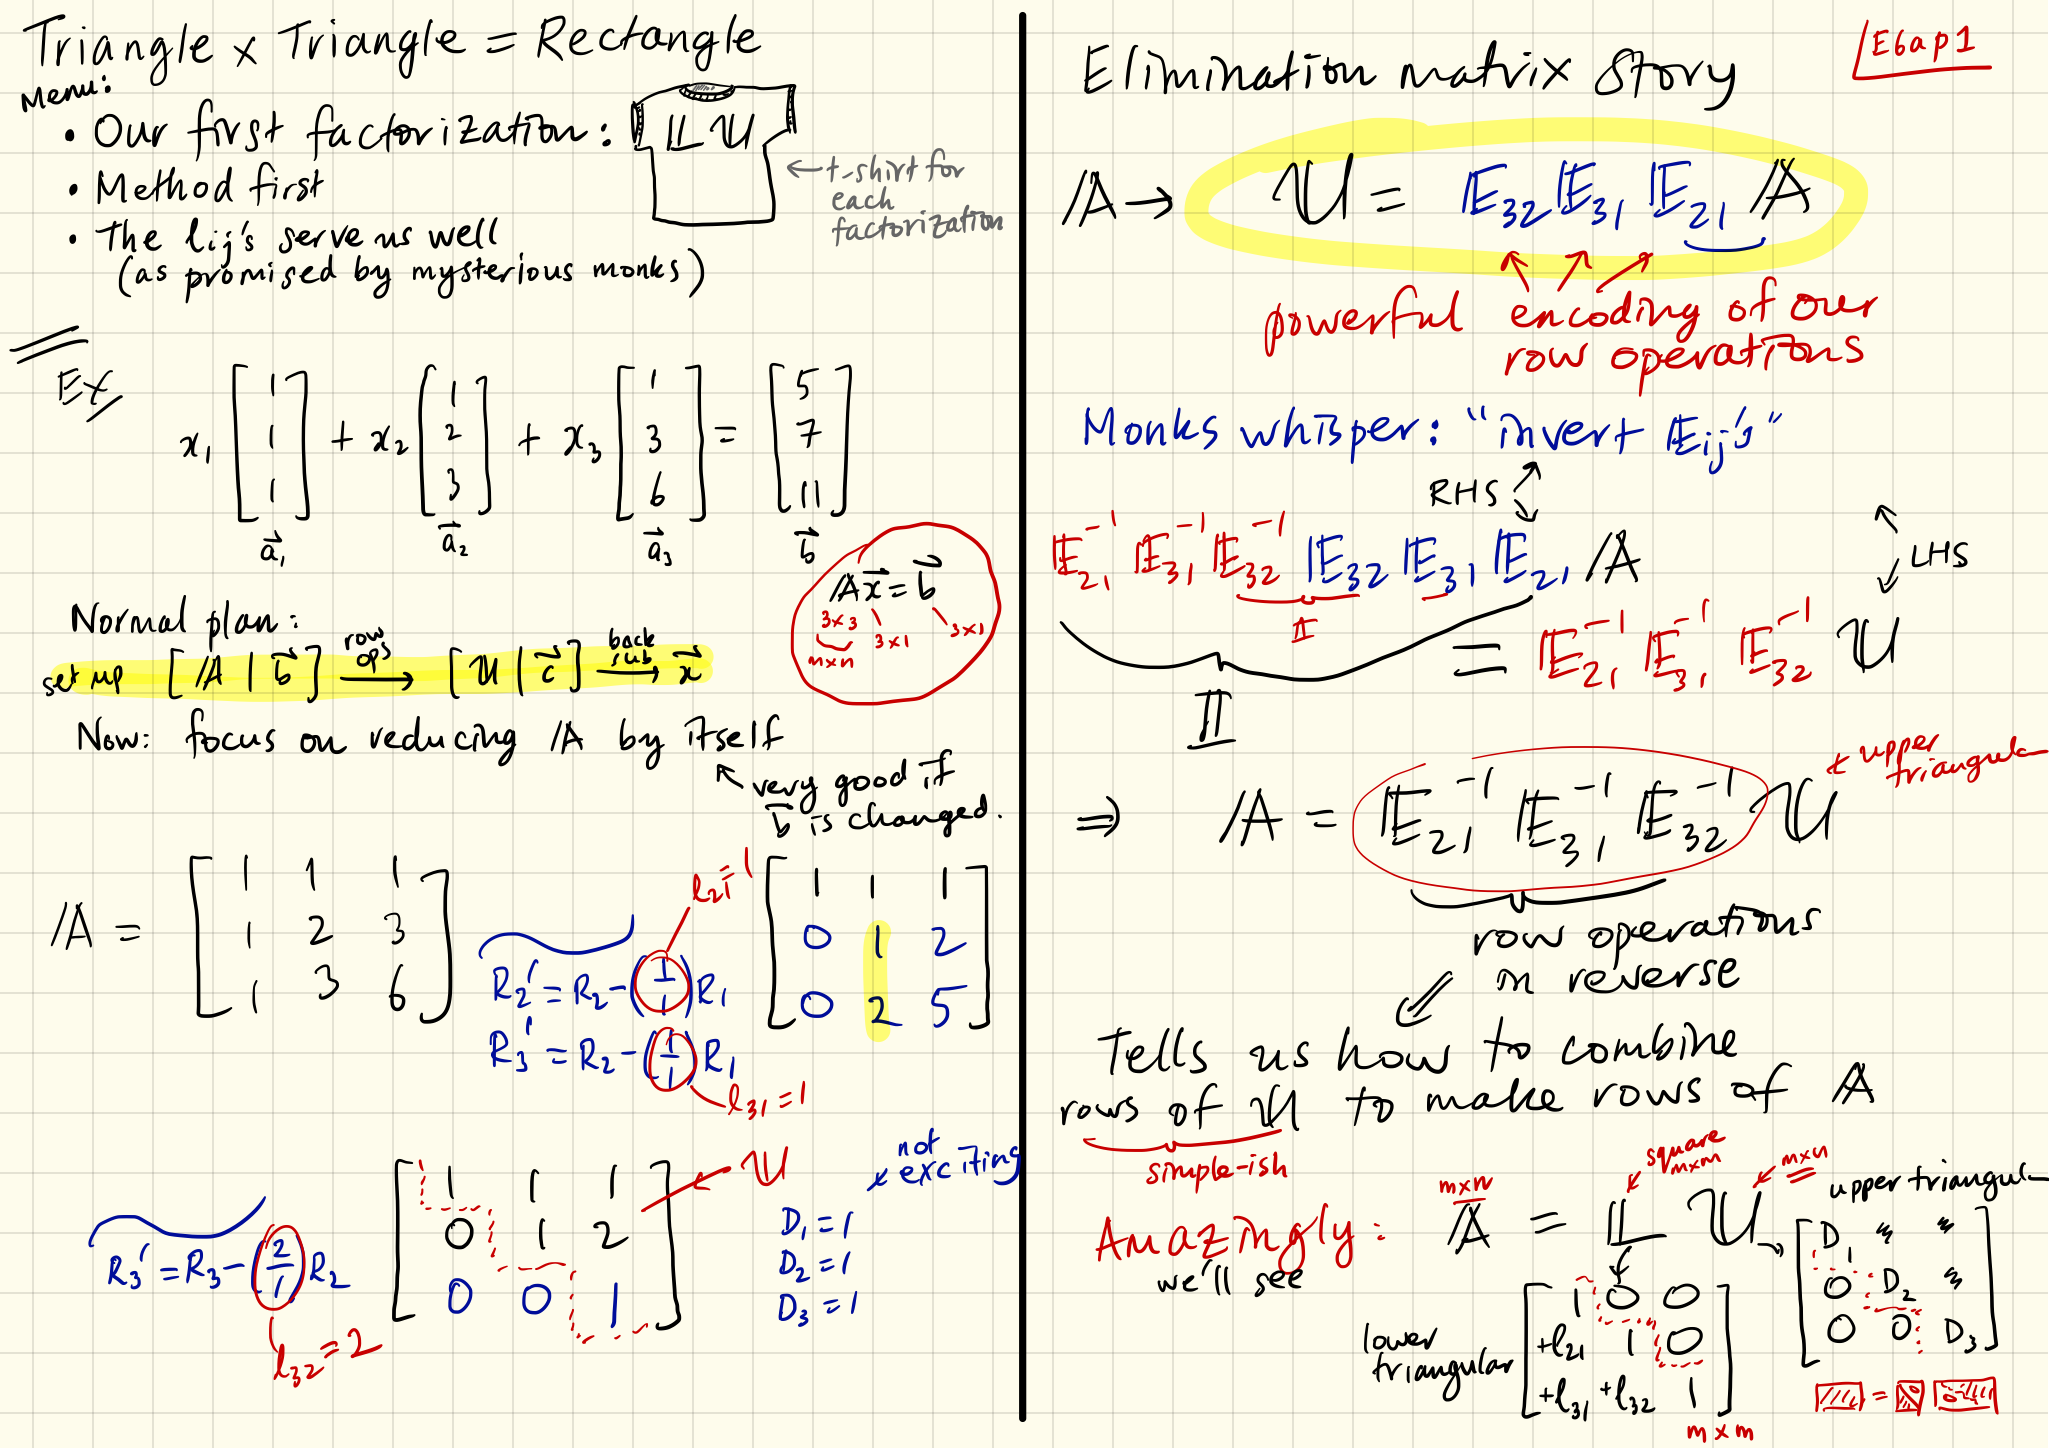 Triangle x Triangle = Rectangle
Menu:
• Our first factorization: LU
← t-shirt for
each
factorization
• Method first
• The lij's serve us well
(as promised by mysterious monks)
Ex
x₁ [1 1 1] + x₂ [1 2 3] + x₃ [1 3 6] = [5 7 11]
a⃗₁ a⃗₂ a⃗₃ b⃗
A x⃗ = b⃗
3x3 3x1 3x1
mxn
Normal plan:
set up [A | b⃗] row ops → [U | c⃗] back sub → x⃗
Now: focus on reducing A by itself
↖ very good if
b⃗ is changed.
A = [1 1 1
1 2 3
1 3 6]
R₂' = R₂ - (1/1) R₁
l₂₁ = 1
R₃' = R₂ - (1/1) R₁
l₃₁ = 1
[1 1 1
0 1 2
0 2 5]
R₃' = R₃ - (2/1) R₂
l₃₂ = 2
[1 1 1
0 1 2
0 0 1]
← U
not
exciting
D₁ = 1
D₂ = 1
D₃ = 1
E6ap1
Elimination matrix story
A → U = E₃₂ E₃₁ E₂₁ A
powerful encoding of our
row operations
Monks whisper: "invert Eij's"
RHS
E₂₁⁻¹ E₃₁⁻¹ E₃₂⁻¹ E₃₂ E₃₁ E₂₁ A
I
LHS
= E₂₁⁻¹ E₃₁⁻¹ E₃₂⁻¹ U
I
⇒ A = E₂₁⁻¹ E₃₁⁻¹ E₃₂⁻¹ U
← upper
triangular
row operations
in reverse
Tells us how to combine
rows of U to make rows of A
simple-ish
Amazingly:
we'll see
mxn
square
mxm
mxn
A = L U
upper triangular
[D₁ " "
0 D₂ "
0 0 D₃]
lower
triangular
[1 0 0
+l₂₁ 1 0
+l₃₁ +l₃₂ 1]
mxm
=